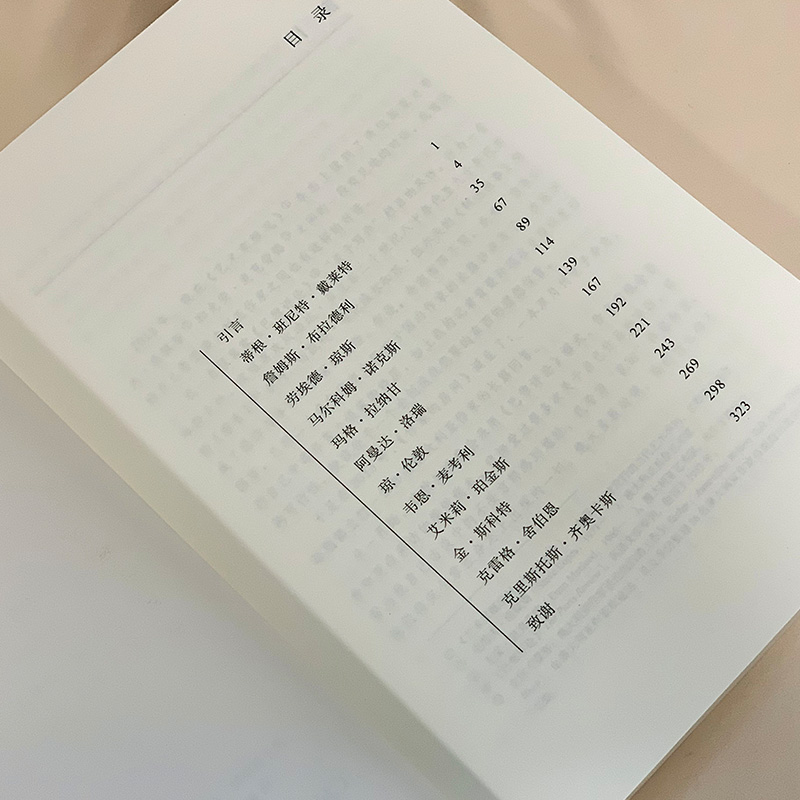 目 录
引言 1
蒂根·班尼特·戴莱特 4
詹姆斯·布拉德利 35
劳埃德·琼斯 67
马尔科姆·诺克斯 89
玛格·拉纳甘 114
阿曼达·洛瑞 139
琼·伦敦 167
韦恩·麦考利 192
艾米莉·珀金斯 221
金·斯科特 243
克雷格·舍伯恩 269
克里斯托斯·齐奥卡斯 298
致谢 323